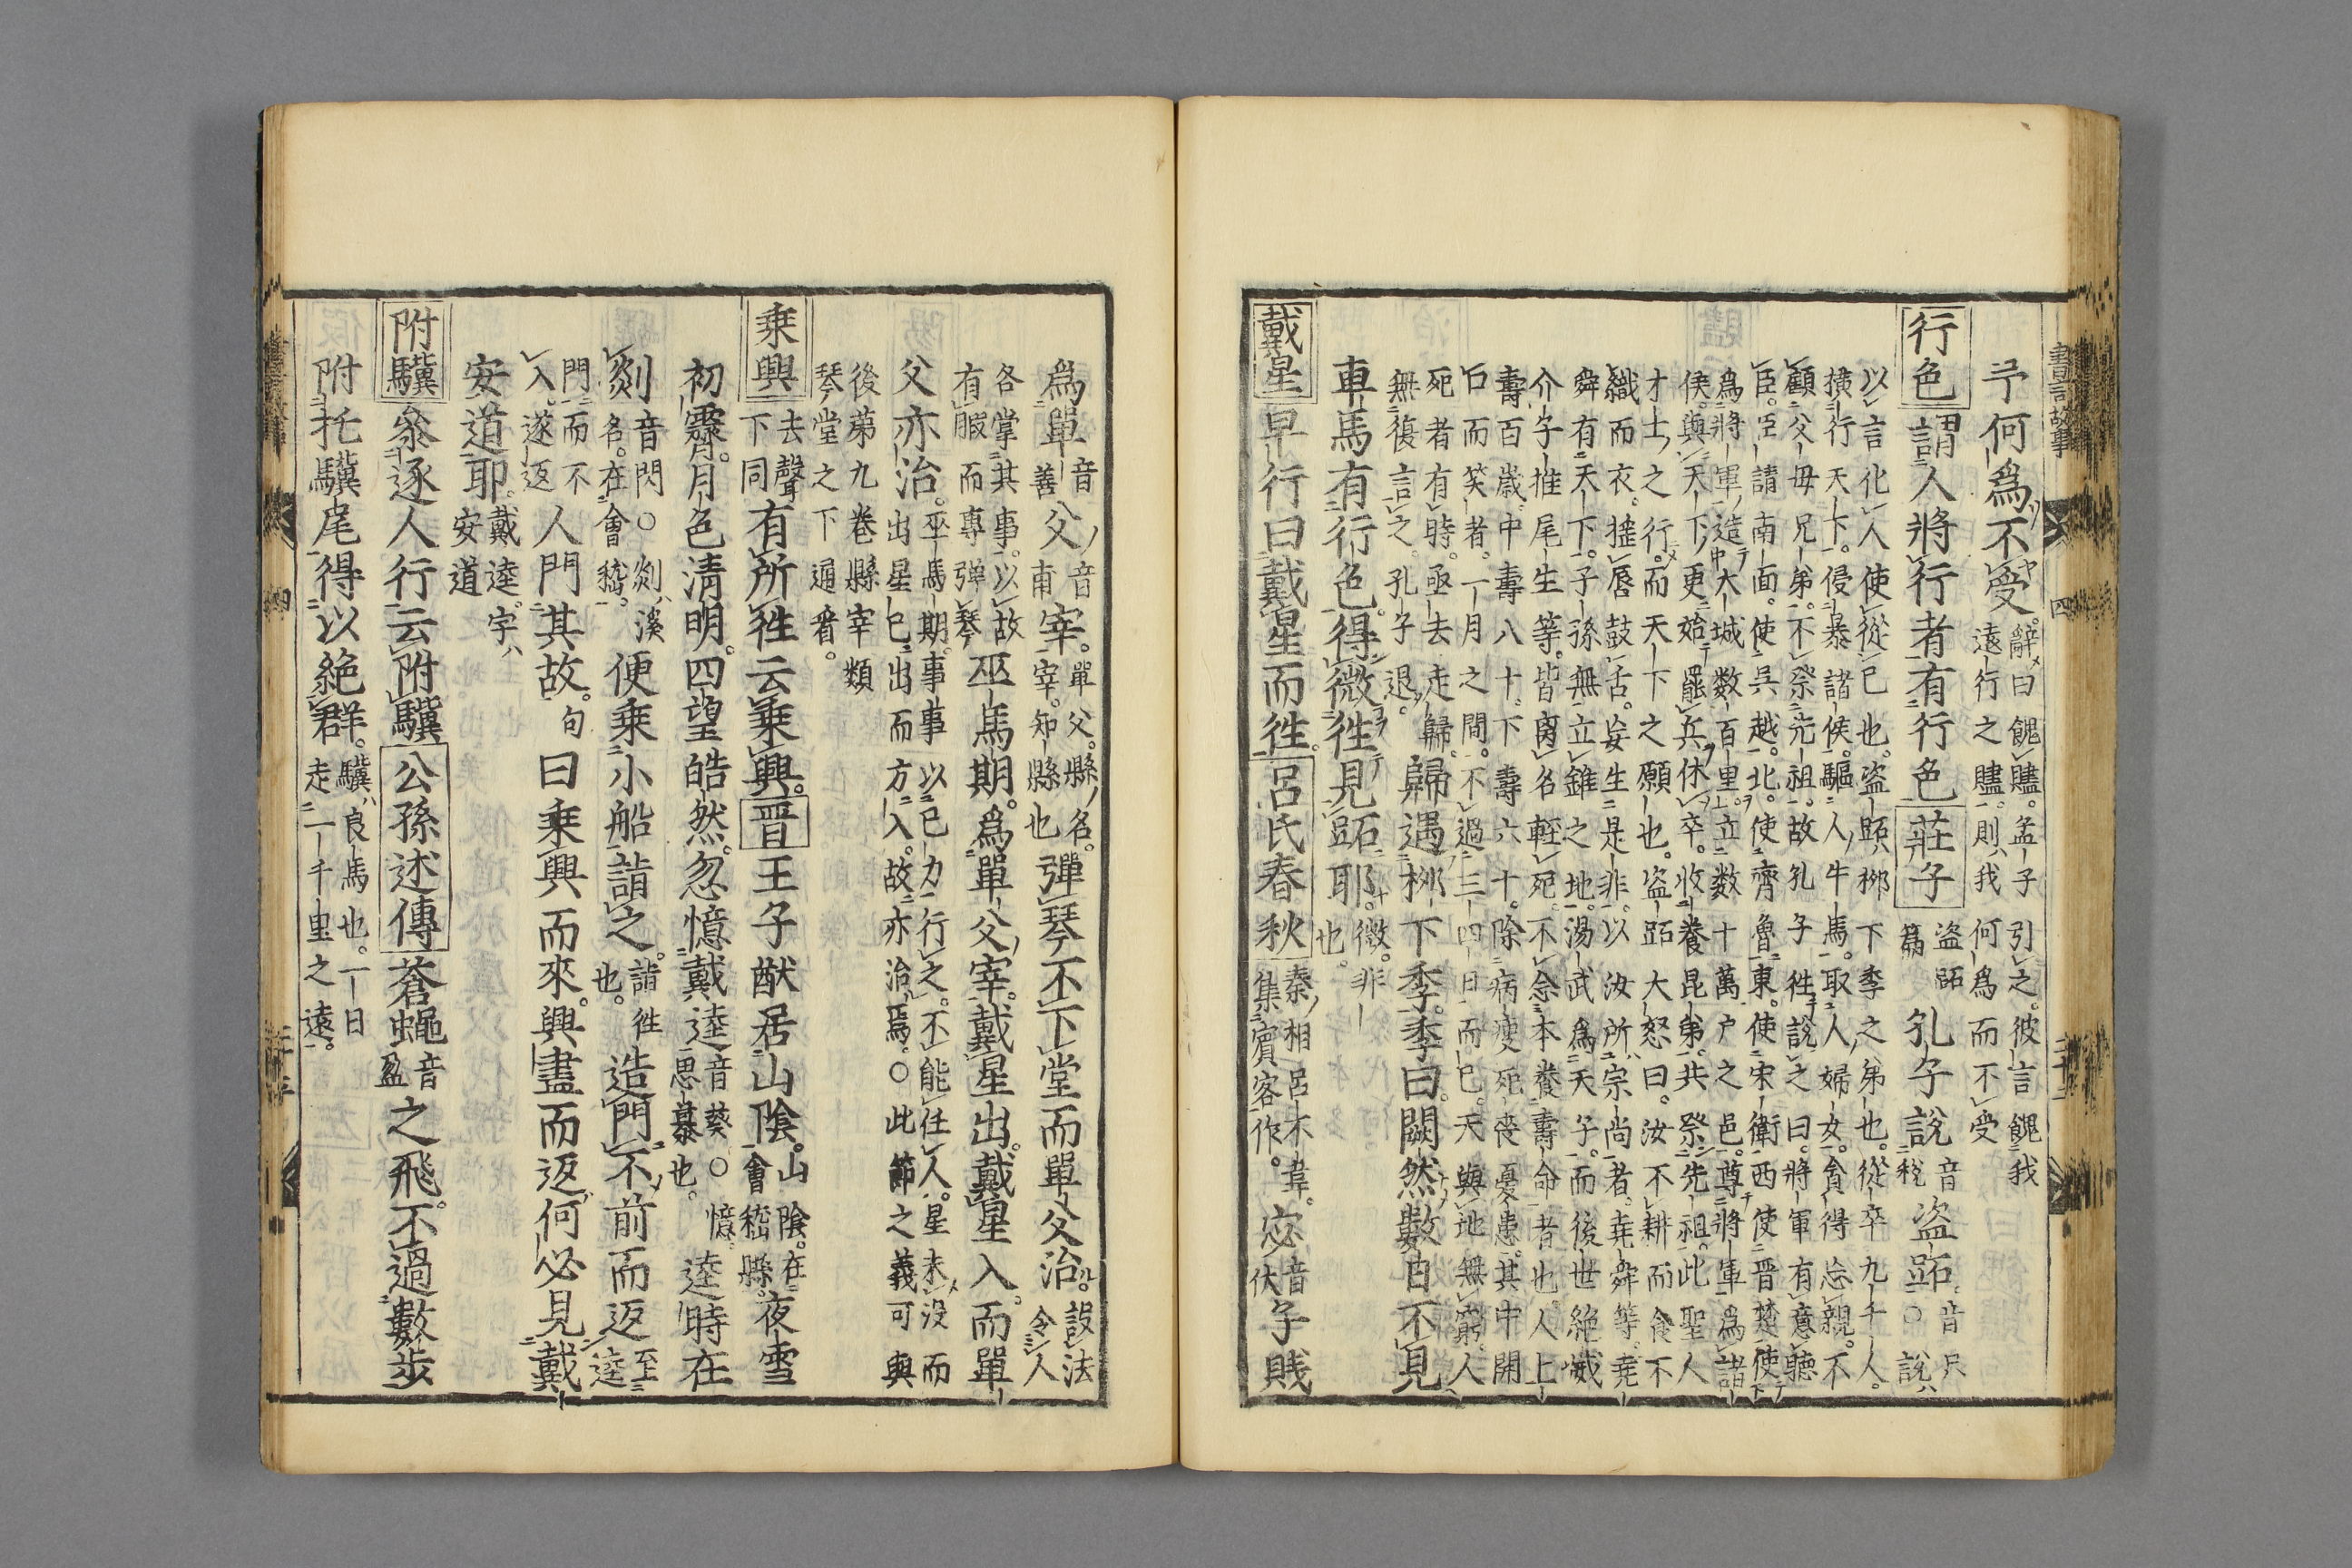 書言故事 四
予何爲不受。辭曰餽贐。孟子引之。彼言餽我
遠行之贐。則我何爲而不受
行色 謂人將行者有行色 莊子 盜跖 孔子說 音稅 盜跖。音尺 ○說
以言化人使從已也。盜跖柳下季之弟也。從卒九千人。
橫行天下。侵暴諸侯。驅人牛馬。取人婦女。貪得忘親。不
顧父母兄弟。不祭先祖。故孔子徃說之曰。將軍有意聽
臣。臣請南面。使吳越。北。使齊魯。東。使宋衛。西使晉楚。使
爲將軍造大城数百里。立数十萬戶之邑。尊將軍爲諸
侯。與天下更始。罷兵休卒。收養昆弟。共祭先祖。此聖人
才士之行。而天下之願也。盜跖大怒曰。汝不耕而食不
織而衣。搖唇鼓舌。妄生是非。以汝所宗尚者。堯舜等。堯
舜有天下。子孫無立錐之地。湯武爲天子。而後世絶滅
介子推尾生等。皆离名輕死。不念本養壽命者也。人上
壽百歲。中壽八十。下壽六十。除病瘦死喪憂患。其中開
口而笑者。一月之間。不過三四日而已。天與地無窮。人
死者有時。亟去走歸。
無復言之。孔子退。 歸遇柳下季。季曰。闕然數日不見
車馬有行色。得微徃見跖耶。微。非也。
戴星 早行曰戴星而徃。 呂氏春秋 秦相呂不韋。集賓客作。 宓音伏 子賤
爲單音善 父音甫 宰。單父。縣名。宰。知縣也 彈琴不下堂而單父治。設法令人
各掌其事。以故
有暇而專弾琴 巫馬期。爲單父宰。戴星出。戴星入。而單
父亦治。巫馬期。事事以已力行之。不能任人。星未没而
出星已出而方入。故亦治焉。○此節之義可與
後第九卷縣宰類
琴堂之下通看。
乗興 去聲 下同 有所徃云乗興。 晋 王子猷居山陰。山陰。在會稽縣。 夜雪
初霽。月色清明。四望皓然。忽憶戴逵音葵○憶。思慕也。 逵時在
剡音閃○剡溪名。在會稽。 便乗小船詣之。詣徃也。 造門不前而返至逵
門而不
入。遂返 人問其故。句 曰乗興而來。興盡而返。何必見戴
安道耶。戴逵。字安道
附驥 叅逐人行云附驥 公孫述傳 蒼蠅音盈 之飛。不過數步
附托驥尾。得以絶群。驥良馬也。一日走一千里之遠。